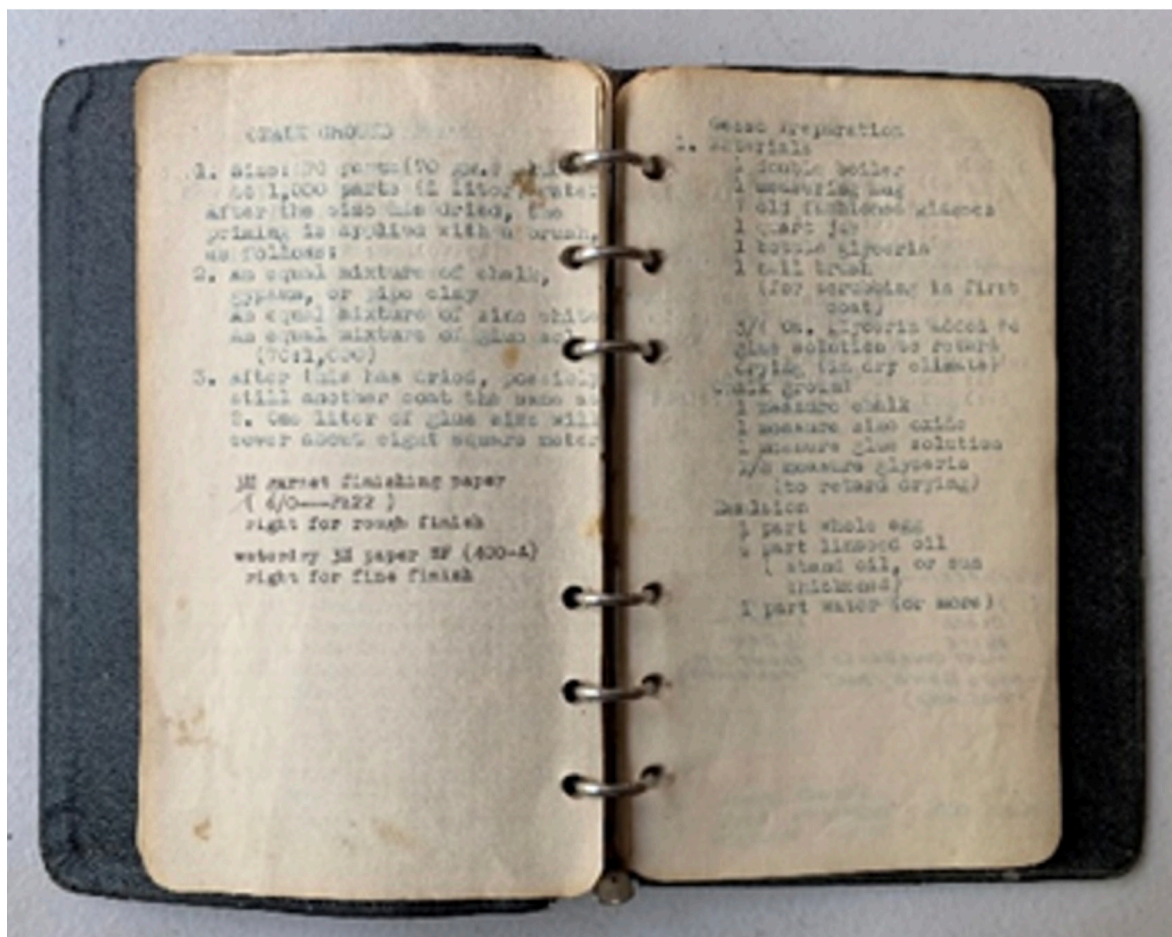 CHALK GROUND
1. Size: 70 parts (70 gms.)
to 1,000 parts (1 liter) water
after the size has dried, the
priming is applied with a brush,
as follows:
2. an equal mixture of chalk,
gypsum, or pipe clay
an equal mixture of zinc white
an equal mixture of glue sol
(70:1,000)
3. after this has dried, possibly
still another coat the same as
2. One liter of glue size will
cover about eight square meter
3M garnet finishing paper
( 6/0---
right for rough finish
waterdry 3M paper (400-A)
right for fine finish
Gesso Preparation
1. Materials
1 double boiler
1 measuring mug
old fashioned glasses
1 quart jar
1 bottle glycerin
1 brush
(for scrubbing in first
coat)
Glycerin added to
glue solution to retard
drying (in dry climate)
Chalk ground
1 measure chalk
1 measure zinc oxide
1 measure glue solution
measure glycerin
(to retard drying)
Emulsion
1 part whole egg
part linseed oil
( stand oil, or sun
thickened)
1 part water (or more)